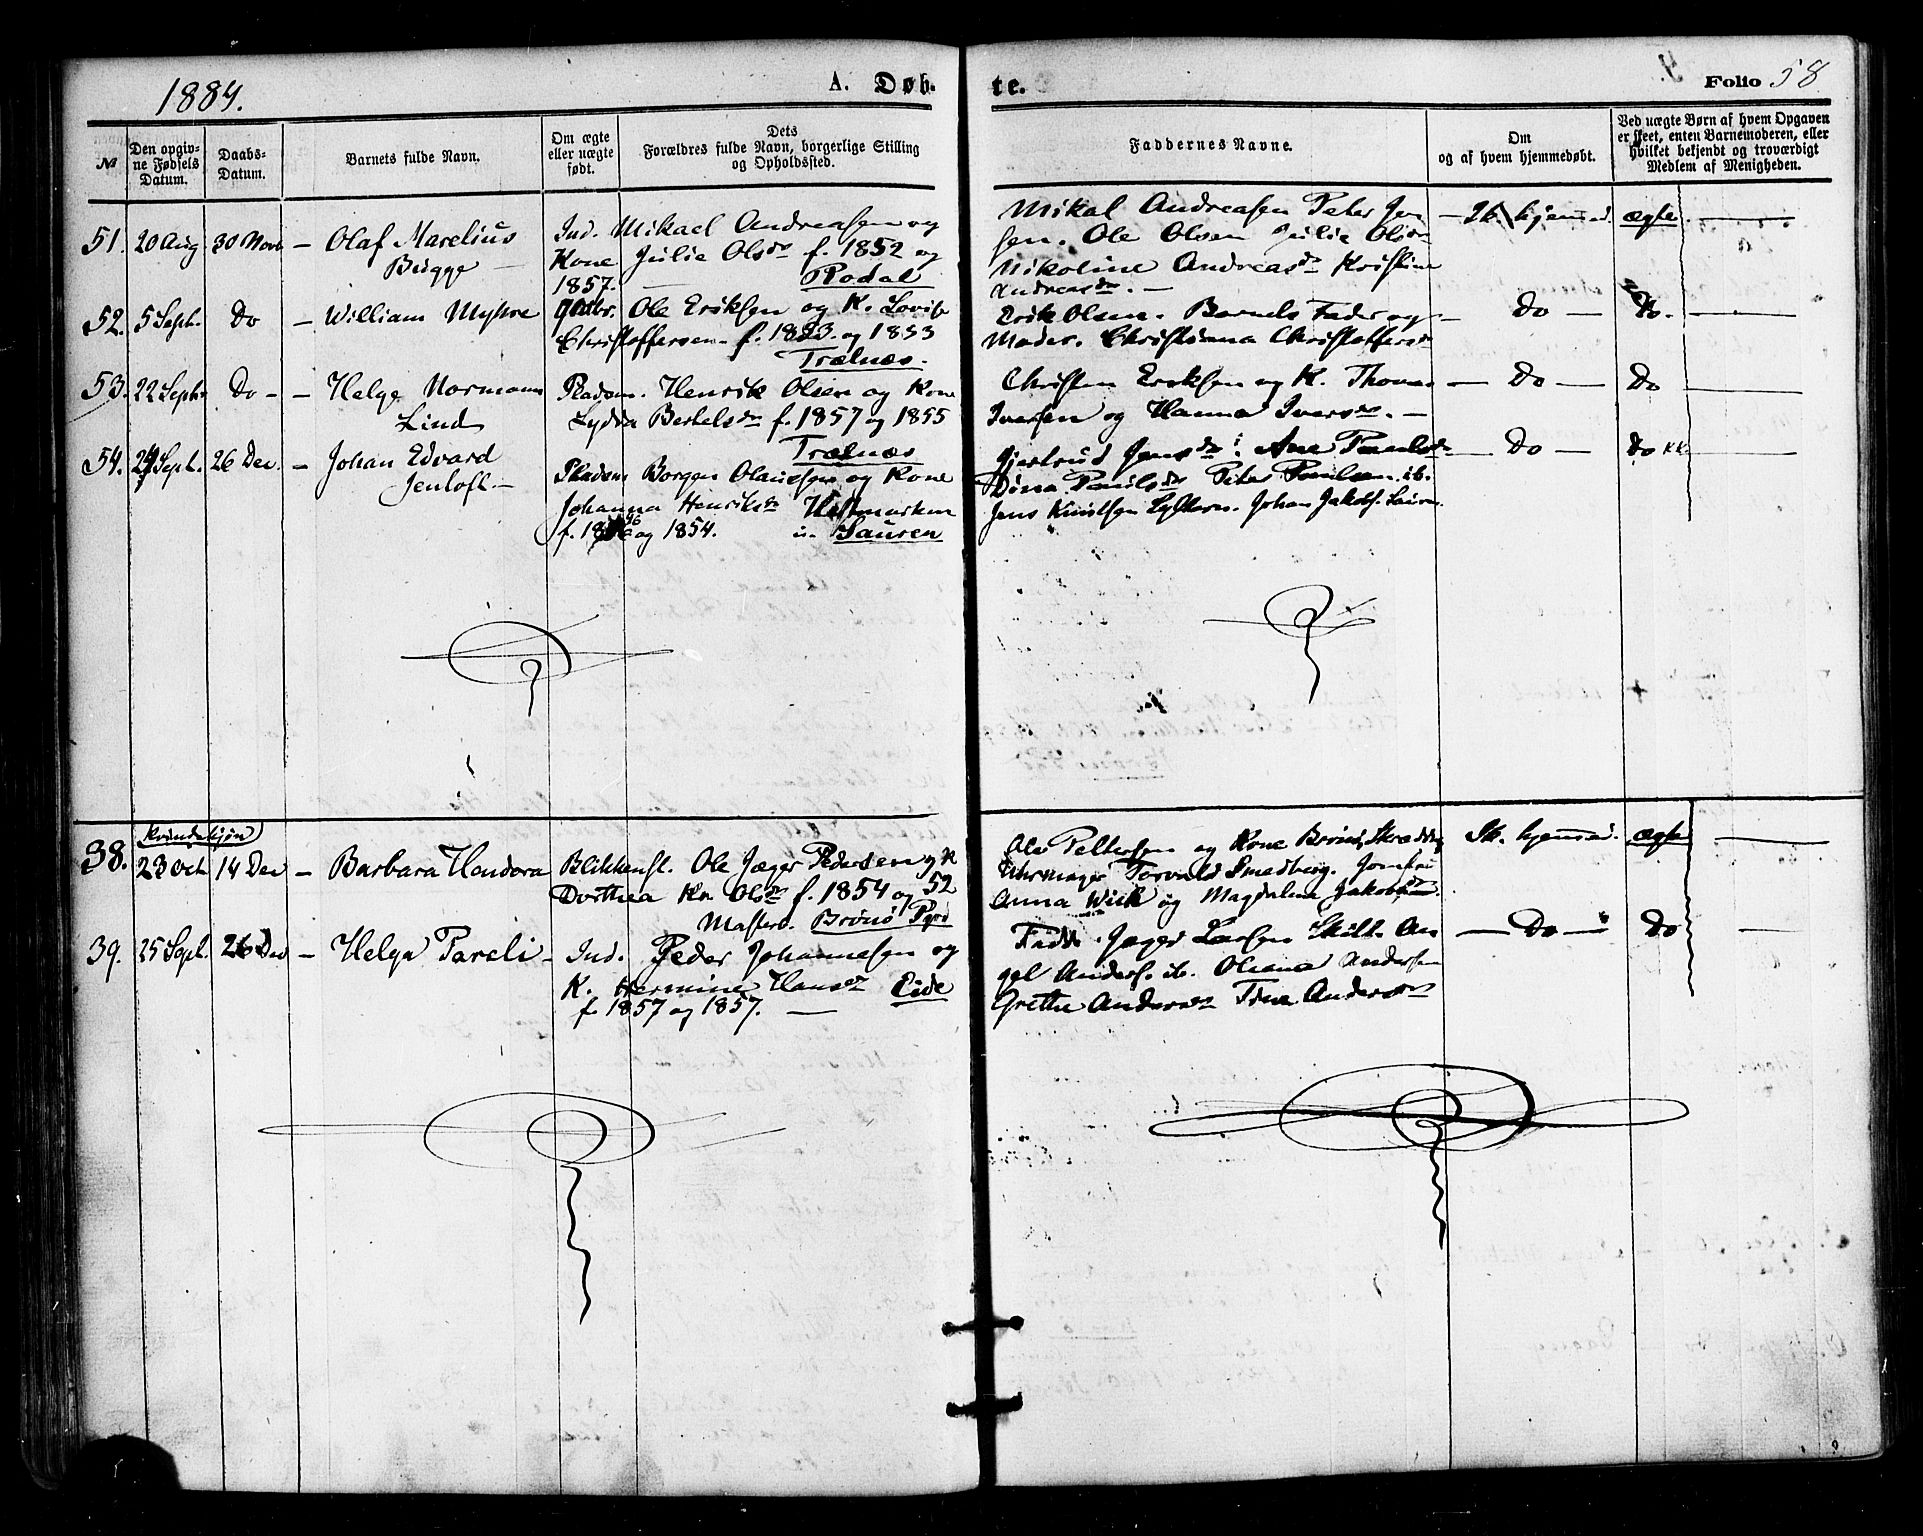 1884.
A. Døb-
te.
Folio 58
№
Den opgiv-
ne Fødsels
Datum.
Daabs-
Datum.
Barnets fulde Navn.
Om ægte
eller uægte
født.
Dets
Forældres fulde Navn, borgerlige Stilling
og Opholdssted.
Faddernes Navne.
Om
og af hvem hjemmedøbt.
Ved uægte Børn af hvem Opgaven
er skeet, enten Barnemoderen, eller
hvilket bekjendt og troværdigt
Medlem af Menigheden.
51. 20 Aug 30 Novb — Olaf Marelius
Bugge —
Ind. Mikael Andreasen og
Kone Julie Olsdr f. 1852 og
1857. — Rodal
Mikal Andreasen Peter Jen
sen. Ole Olsen Julie Olsdr
Nikoline Andreasdr Kristine
Andreasdr. —
— St. hjemmed. ægte. —
52. 5 Septr. Do — William Myhre
Gaabr. Ole Eriksen og K. Lovise
Christoffersen f. 1823. og 1853
Trælnæs.
Erik Olsen. Barnets Fader og
Moder. Christianna Christoffersdr
— Do — Do. —
53. 22 Septr Do - — Helge Normann
Lind
Pladsm. Henrik Olsen og Kone
Lydia Bertelsdr f. 1857 og 1855
Trælnæs
Christen Eriksen og K. Thomas
Iversen og Hanna Iversdr. —
— Do — Do —
54. 24 Sept. 26 Dec. — Johan Edvard
Jentoft. —
Pladsm Borgen Olaussen og Kone
Johanna Henriksdr Hestmarken
f. 1856 og 1854. i. Sauren
Gjertrud Jensdr i Ane Paulsdr
Dina Paulsdr Peter Paulsen. ib.
Jens Knutsen Johan Jakobs. Sauren.
— Do — Do KK. —
Kvindekjøn
38. 23 Oct. 14 Dec — Barbara Hendora
Blikkensl. Ole Jæger Pedersen og K
Dorthea Kr. Olsdr f. 1854 og 52
Brønø Pgrd
Ole Pettersen og Kone Brønø, Skrædder
Uhrmager Torvald Smedberg. Jomfru
Anna Wiik og Magdalina Jakobsdr.
St. hjemmed. ægte —
39. 25 Sept. 26 Dec — Helga Pareli —
Ind. Peder Johannesen og
K. Hermine Hansdr Eide
f. 1857 og 1857. —
Jæger Larsen Skill. An
gel Anders. ib. Oliana Andersen
Grethe Andersdr Trine Andersdr
— Do — Do —